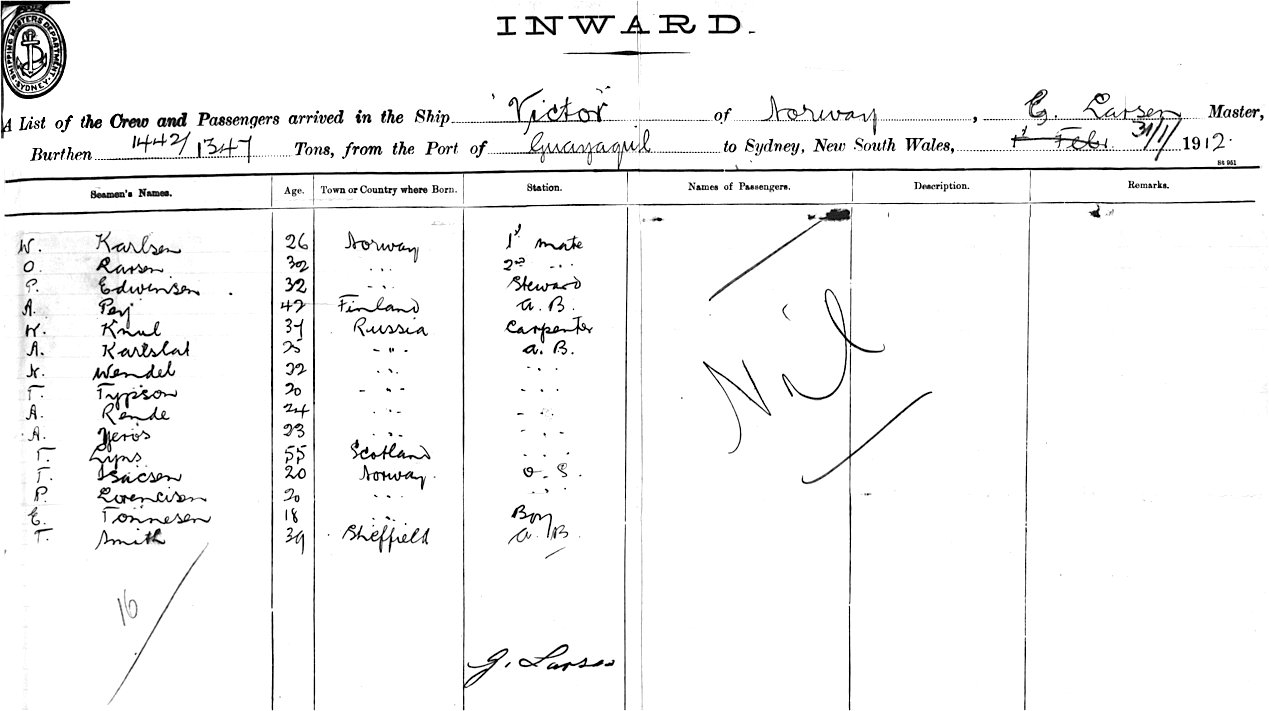 SHIPPING MASTERS DEPARTMENT. SYDNEY.
INWARD.
A List of the Crew and Passengers arrived in the Ship "Victor" of Norway, G. Larsen Master,
Burthen 1442/1347 Tons, from the Port of Guayaquil to Sydney, New South Wales, 1 Feb. 31/1/ 1912.
St 951
Seamen's Names. Age. Town or Country where Born. Station. Names of Passengers. Description. Remarks.
W. Karlsen 26 Norway 1st mate
O. Larsen 302 " 2nd "
P. Edwinsen 32 " Steward
A. 42 Finland A. B.
Knul Russia Carpenter
A. 25 " a. B.
K. Wendel 22 " "
T. Typson 20 " "
A. Rende 24 " "
A. 23 " "
T. 55 Scotland "
T. Isacsen 20 Norway O. S.
P. Lorencisen 20 " "
E. Tonnesen 18 " Boy
T. Smith 39 Sheffield A. B.
Nil
16
G. Larsen